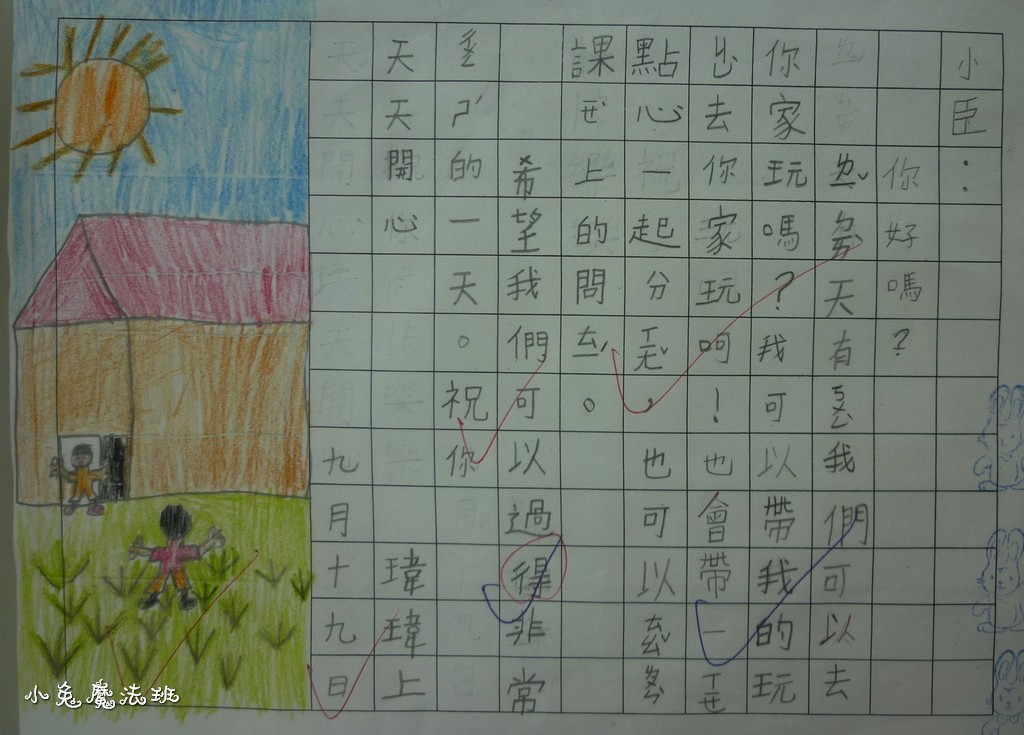 小臣：
你好嗎？
天有我們可以去
你家玩嗎？我可以帶我的玩
去你家玩呵！也會帶一ㄒㄧㄝ
點心一起分ㄒㄧㄤˇ，也可以
課上的問ㄊㄧˊ。
希望我們可以過得非常
ㄕˊ的一天。祝你
天天開心 瑋瑋上
九月十九日
小兔魔法班